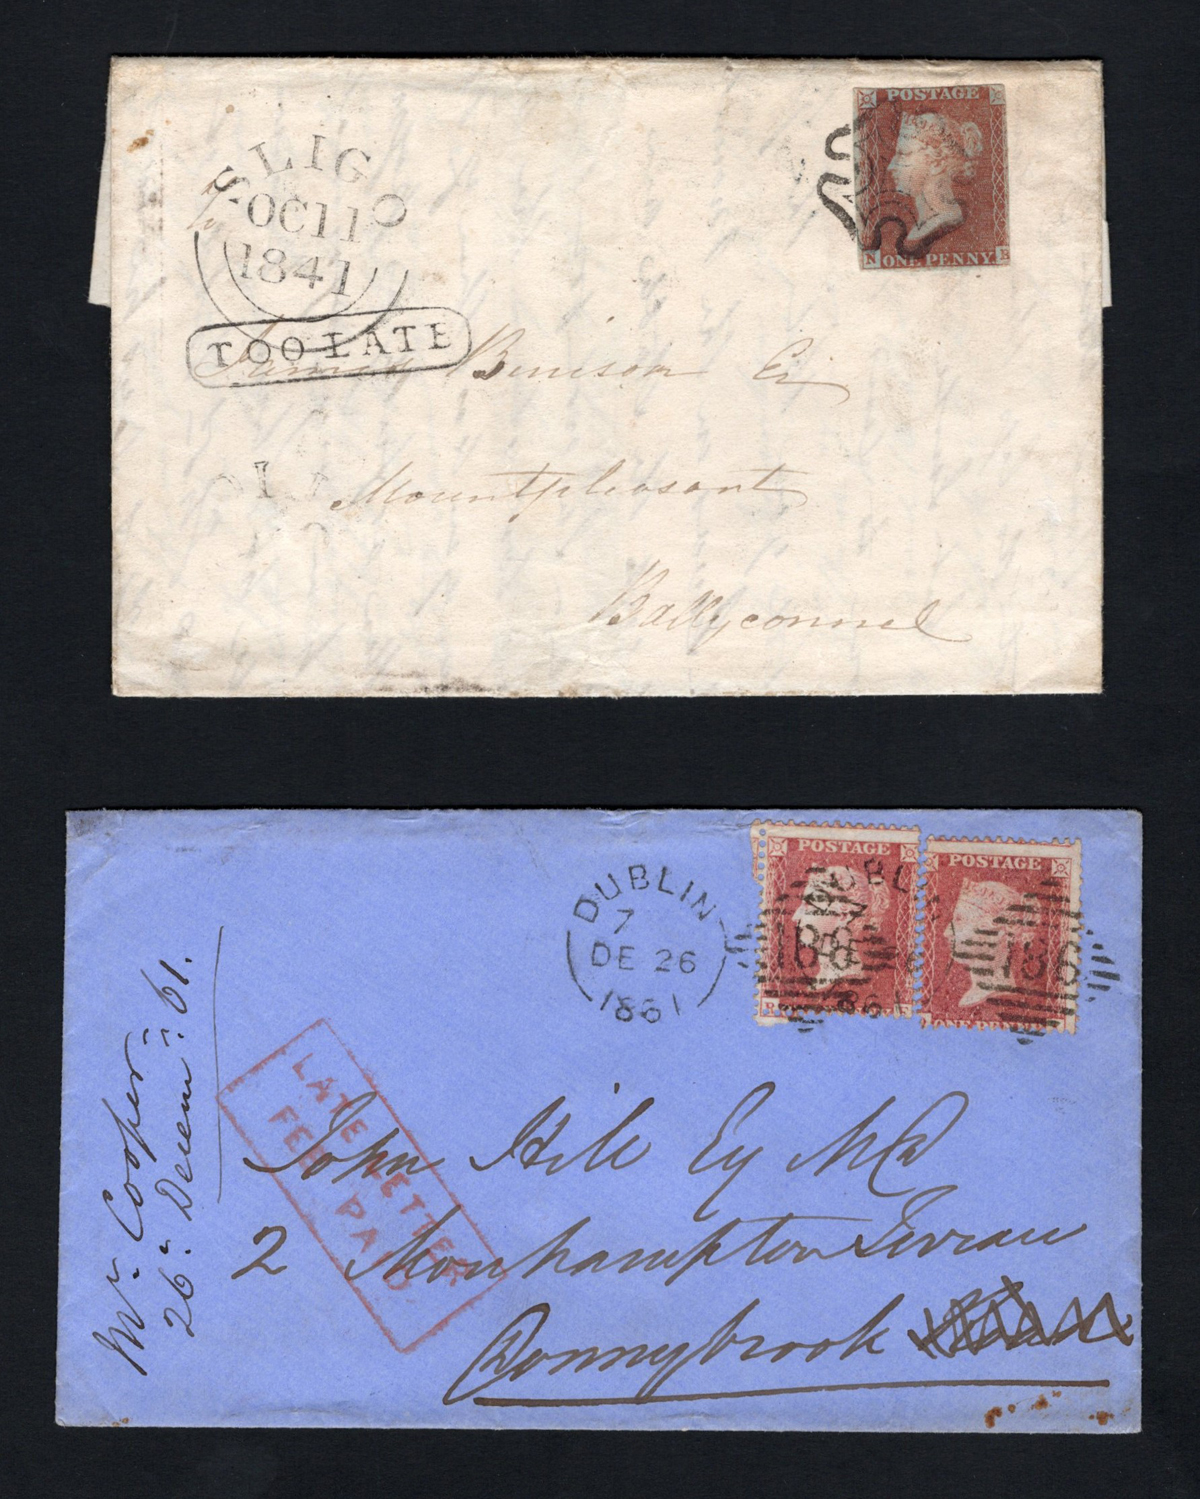 SLIGO
OC 11
1841
TOO LATE
POSTAGE
N ONE PENNY
James Benison
Mountpleasant
Ballyconnel
DUBLIN
7
DE 26
1861
POSTAGE
POSTAGE
186
186
ONE PENNY
LATE LETTER
FEE PAID
Mr. Cooper
26. Decem: 61.
John Hill Esq MD
2 Monhampton Terrace
Donnybrook